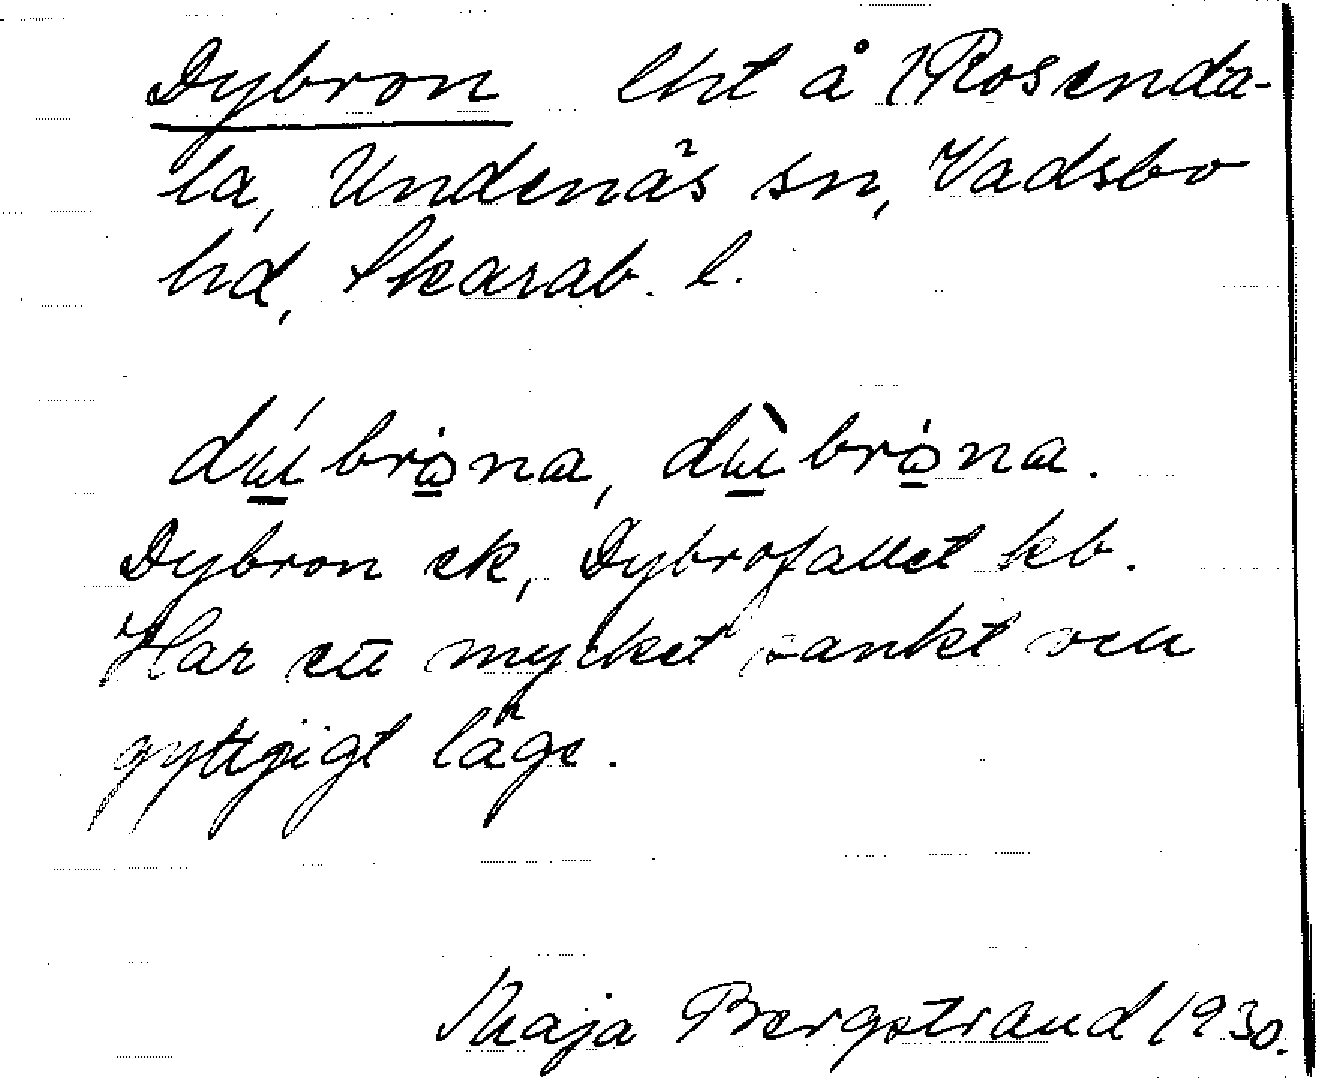 Dybron lht å 1 Rosenda-
la, Undenäs sn, Vadsbo
hd, Skarab. l.
Dybron ek, Dybrofallet kb.
Har ett mycket sankt och
gyttjigt läge.
Maja Bergstrand 1930.